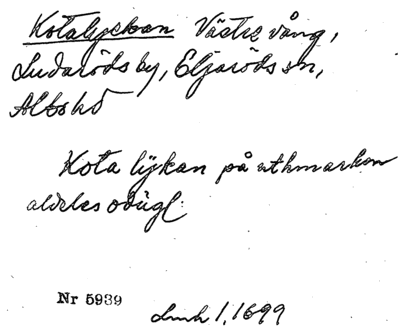 Kotalyckan Västre vång,
Ludaröds by, Eljaröds sn,
Albo hd
Kota lÿkan på uthmarken
aldeles odügl:
Nr 5939
Lmh 1, 1699